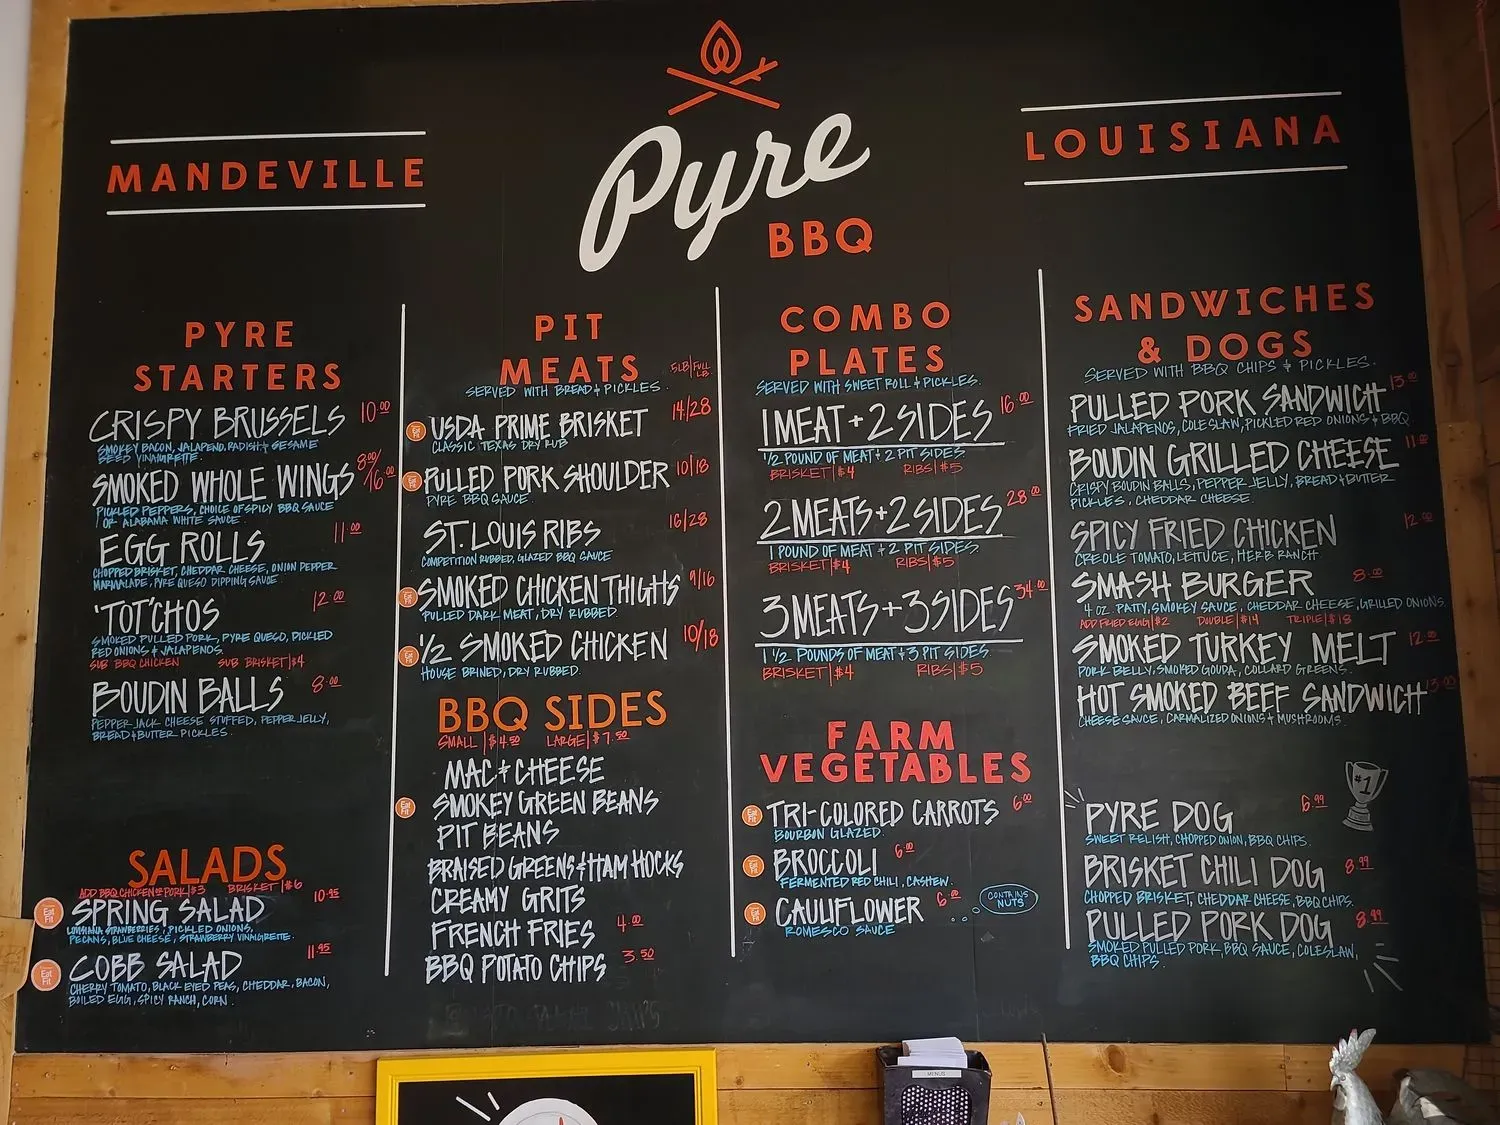 MANDEVILLE
Pyre
BBQ
LOUISIANA
PYRE
STARTERS
CRISPY BRUSSELS 10.00
SMOKEY BACON, JALAPENO, RADISH + SESAME
SEED VINAIGRETTE
SMOKED WHOLE WINGS 8.00/16.00
PICKLED PEPPERS, CHOICE OF SPICY BBQ SAUCE
OR ALABAMA WHITE SAUCE.
EGG ROLLS 11.00
CHOPPED BRISKET, CHEDDAR CHEESE, ONION PEPPER
MARMALADE, PYRE QUESO DIPPING SAUCE
'TOT'CHOS 12.00
SMOKED PULLED PORK, PYRE QUESO, PICKLED
RED ONIONS & JALAPENOS
SUB BBQ CHICKEN SUB BRISKET|$4
BOUDIN BALLS 8.00
PEPPER JACK CHEESE STUFFED, PEPPER JELLY,
BREAD & BUTTER PICKLES.
SALADS
ADD BBQ CHICKEN OR PORK|$3 BRISKET|$6
Eat Fit SPRING SALAD 10.95
LOUISIANA STRAWBERRIES, PICKLED ONIONS,
PECANS, BLUE CHEESE, STRAWBERRY VINAIGRETTE.
Eat Fit COBB SALAD 11.95
CHERRY TOMATO, BLACK EYED PEAS, CHEDDAR, BACON,
BOILED EGG, SPICY RANCH, CORN.
PIT
MEATS .5LB|FULL LB.
SERVED WITH BREAD + PICKLES.
Eat Fit USDA PRIME BRISKET 14/28
CLASSIC TEXAS DRY RUB
Eat Fit PULLED PORK SHOULDER 10/18
PYRE BBQ SAUCE.
ST. LOUIS RIBS 16/28
COMPETITION RUBBED, GLAZED BBQ SAUCE
Eat Fit SMOKED CHICKEN THIGHS 9/16
PULLED DARK MEAT, DRY RUBBED.
Eat Fit 1/2 SMOKED CHICKEN 10/18
HOUSE BRINED, DRY RUBBED.
BBQ SIDES
SMALL|$4.50 LARGE|$7.50
MAC & CHEESE
Eat Fit SMOKEY GREEN BEANS
PIT BEANS
BRAISED GREENS & HAM HOCKS
CREAMY GRITS
FRENCH FRIES 4.00
BBQ POTATO CHIPS 3.50
COMBO
PLATES
SERVED WITH SWEET ROLL & PICKLES.
1 MEAT + 2 SIDES 16.00
1/2 POUND OF MEAT + 2 PIT SIDES
BRISKET|$4 RIBS|$5
2 MEATS + 2 SIDES 28.00
1 POUND OF MEAT + 2 PIT SIDES
BRISKET|$4 RIBS|$5
3 MEATS + 3 SIDES 34.00
1 1/2 POUNDS OF MEAT + 3 PIT SIDES
BRISKET|$4 RIBS|$5
FARM
VEGETABLES
Eat Fit TRI-COLORED CARROTS 6.00
BOURBON GLAZED.
Eat Fit BROCCOLI 6.00
FERMENTED RED CHILI, CASHEW.
Eat Fit CAULIFLOWER 6.00
ROMESCO SAUCE
CONTAINS
NUTS
SANDWICHES
& DOGS
SERVED WITH BBQ CHIPS & PICKLES.
PULLED PORK SANDWICH 13.00
FRIED JALAPENOS, COLESLAW, PICKLED RED ONIONS & BBQ
BOUDIN GRILLED CHEESE 11.00
CRISPY BOUDIN BALLS, PEPPER JELLY, BREAD & BUTTER
PICKLES, CHEDDAR CHEESE.
SPICY FRIED CHICKEN 12.00
CREOLE TOMATO, LETTUCE, HERB RANCH
SMASH BURGER 8.00
4 OZ. PATTY, SMOKEY SAUCE, CHEDDAR CHEESE, GRILLED ONIONS.
ADD FRIED EGG|$2 DOUBLE|$14 TRIPLE|$18
SMOKED TURKEY MELT 12.00
PORK BELLY, SMOKED GOUDA, COLLARD GREENS.
HOT SMOKED BEEF SANDWICH 13.00
CHEESE SAUCE, CARMALIZED ONIONS & MUSHROOMS.
#1
PYRE DOG 6.99
SWEET RELISH, CHOPPED ONION, BBQ CHIPS.
BRISKET CHILI DOG 8.99
CHOPPED BRISKET, CHEDDAR CHEESE, BBQ CHIPS.
PULLED PORK DOG 8.99
SMOKED PULLED PORK, BBQ SAUCE, COLESLAW,
BBQ CHIPS.
MENUS